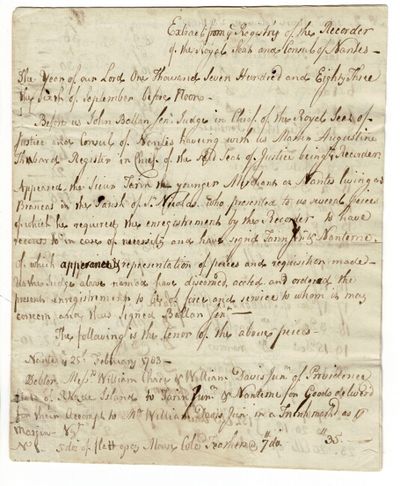 Extract from y Registry of the Recorder
of the Royal Seat and Consul of Nantes -
The Year of our Lord One Thousand Seven Hundred and Eighty Three
the Sixth of September before Noon -
Before us John Ballan Senr Judge in Chief of the Royal Seat of
Justice and Consul of Nantes having with us Master Augustine
Register in Chief of the Seat of Justice being y Recorder
Appeared the Sieur Farin the younger Merchant at Nantes living at
in the Parish of St who presented to us several pieces
of which he required the enregistrement by the Recorder to have
recourse to in case of necessity and have signed Farin &
of which apperance representation of peices and requisition made
the Judge above named have decerned, acted and ordered the
present enregistrement to be of force and service to whom it may
concern and thus Signed Ballan Senr
The following is the tenor of the above peices -
Nantes y 25th February 1783 -
Debtor Messrs William Chace & William Davis Junr of Providence
State of Rhode Island to Farin Junr & for Goods delivered
for their Accompt to Mr William Davis Junr in a Trunk markd as pr
Margin - Vzt
No 5 doz of flatt Cold Feathers @ 7 do 35 -